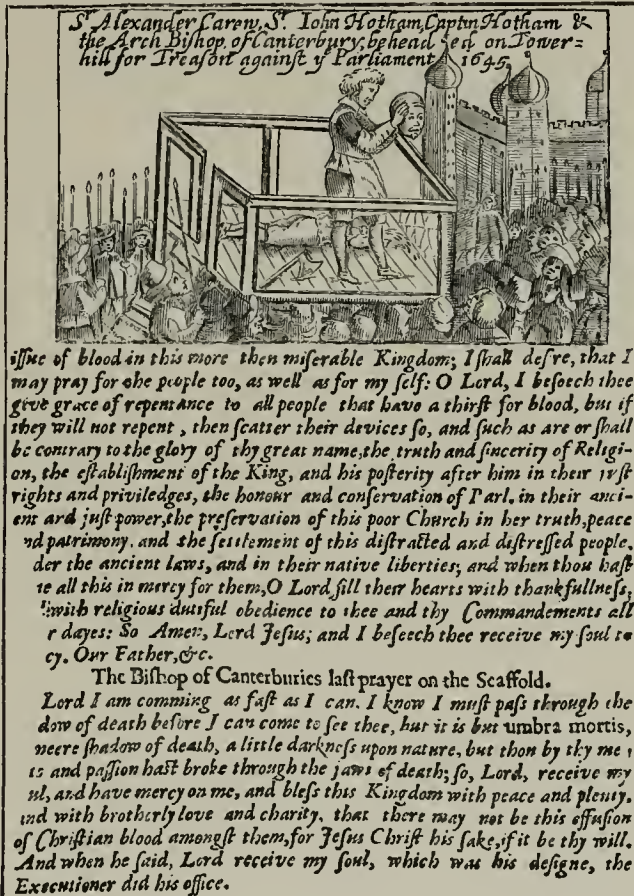 Sr. Alexander Carew, Sr. Iohn Hotham, Captin Hotham &
the Arch Bishop of Canterbury, behead ed on Tower=
hill for Treason against ye Parliament 1645.
iſſue of blood in this more then miſerable Kingdom; I ſhall deſre, that I
may pray for the people too, as well as for my ſelf: O Lord, I beſeech thee
give grace of repentance to all people that have a thirſt for blood, but if
they will not repent, then ſcatter their devices ſo, and ſuch as are or ſhall
be contrary to the glory of thy great name, the truth and ſincerity of Religi-
on, the eſtabliſhment of the King, and his poſterity after him in their juſt
rights and priviledges, the honour and conſervation of Parl. in their anci-
ent ard juſt power, the preſervation of this poor Church in her truth, peace
nd patrimony. and the ſettlement of this diſtracted and diſtreſſed people.
der the ancient laws, and in their native liberties; and when thou haſt
e all this in mercy for them, O Lord, fill their hearts with thankfullneſs,
with religious dutiful obedience to thee and thy Commandements all
r dayes: So Amen, Lord Jeſus; and I beſeech thee receive my ſoul to
cy. Our Father, &c.
The Biſhop of Canterburies laſt prayer on the Scaffold.
Lord I am comming as faſt as I can. I know I muſt paſs through the
dow of death before I can come to ſee thee, but it is but umbra mortis,
neere ſhadow of death, a little darkneſs upon nature, but thou by thy me
ts and paſſion haſt broke through the jaws of death; ſo, Lord, receive my
ul, and have mercy on me, and bleſs this Kingdom with peace and plenty.
nd with brotherly love and charity, that there may not be this effuſion
of Chriſtian blood amongſt them, for Jeſus Chriſt his ſake, if it be thy will.
And when he ſaid, Lord receive my ſoul, which was his deſigne, the
Executioner did his office.